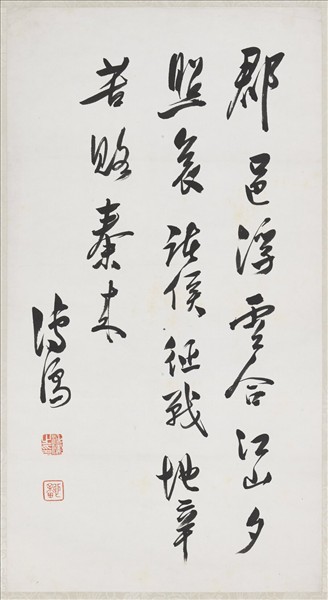 郡邑浮雲合江山夕
照哀諸侯征戰地辛
苦賂秦來
溥儒